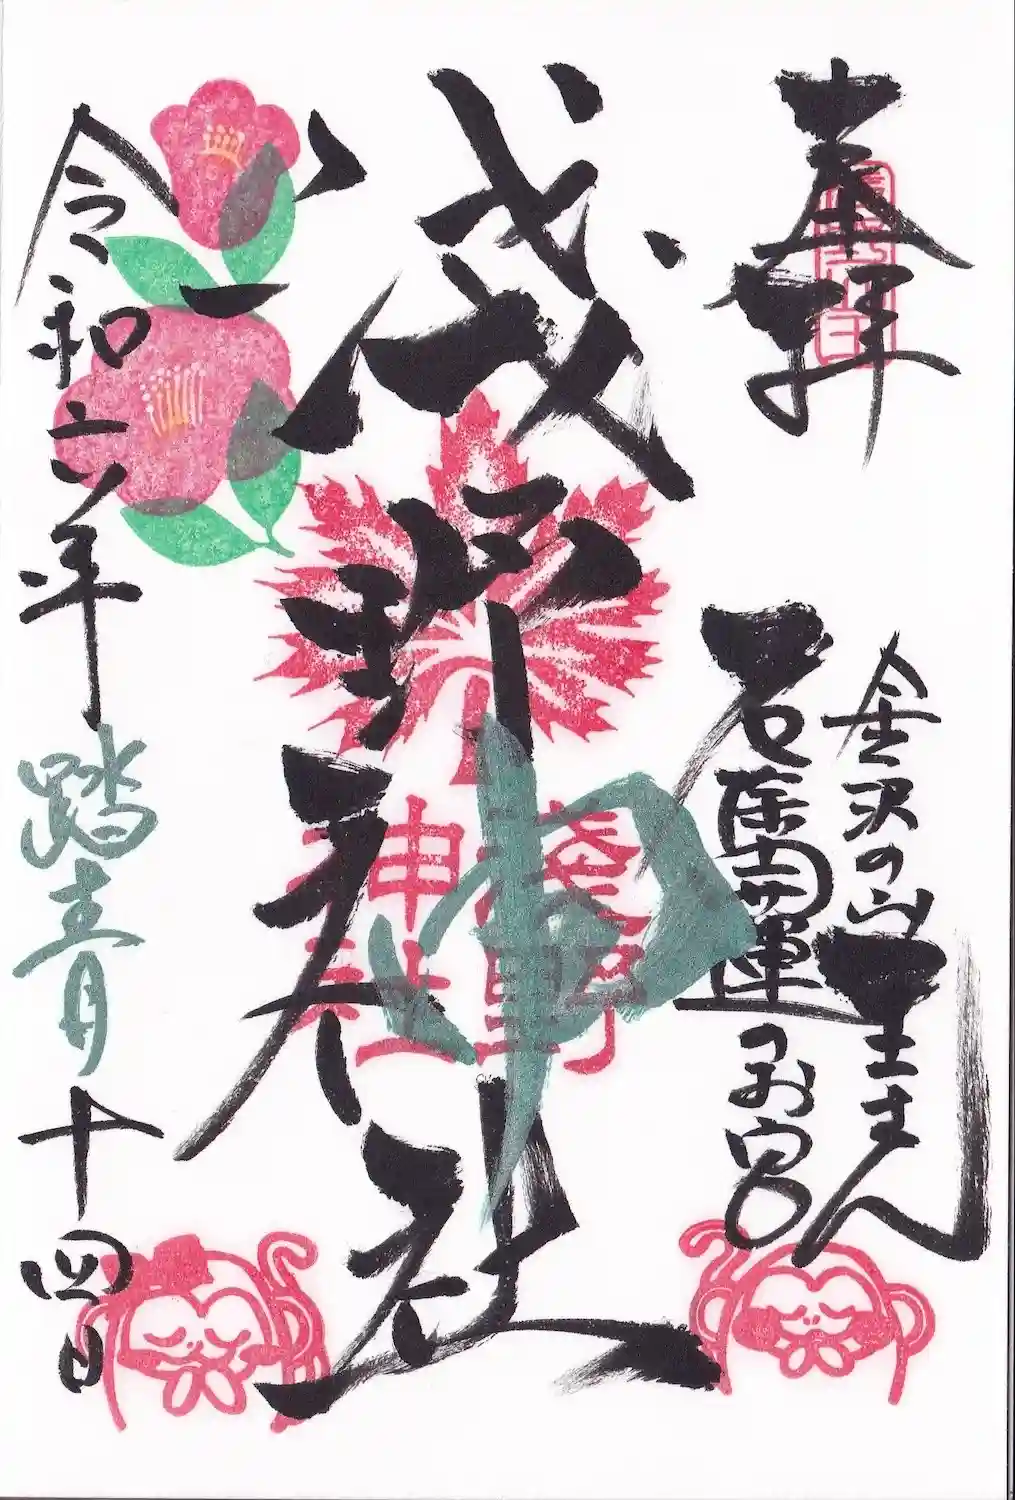 奉拝
金沢の山王さん
厄除開運のお宮
浅野神社
浅野
神社
令和六年踏青月十四日